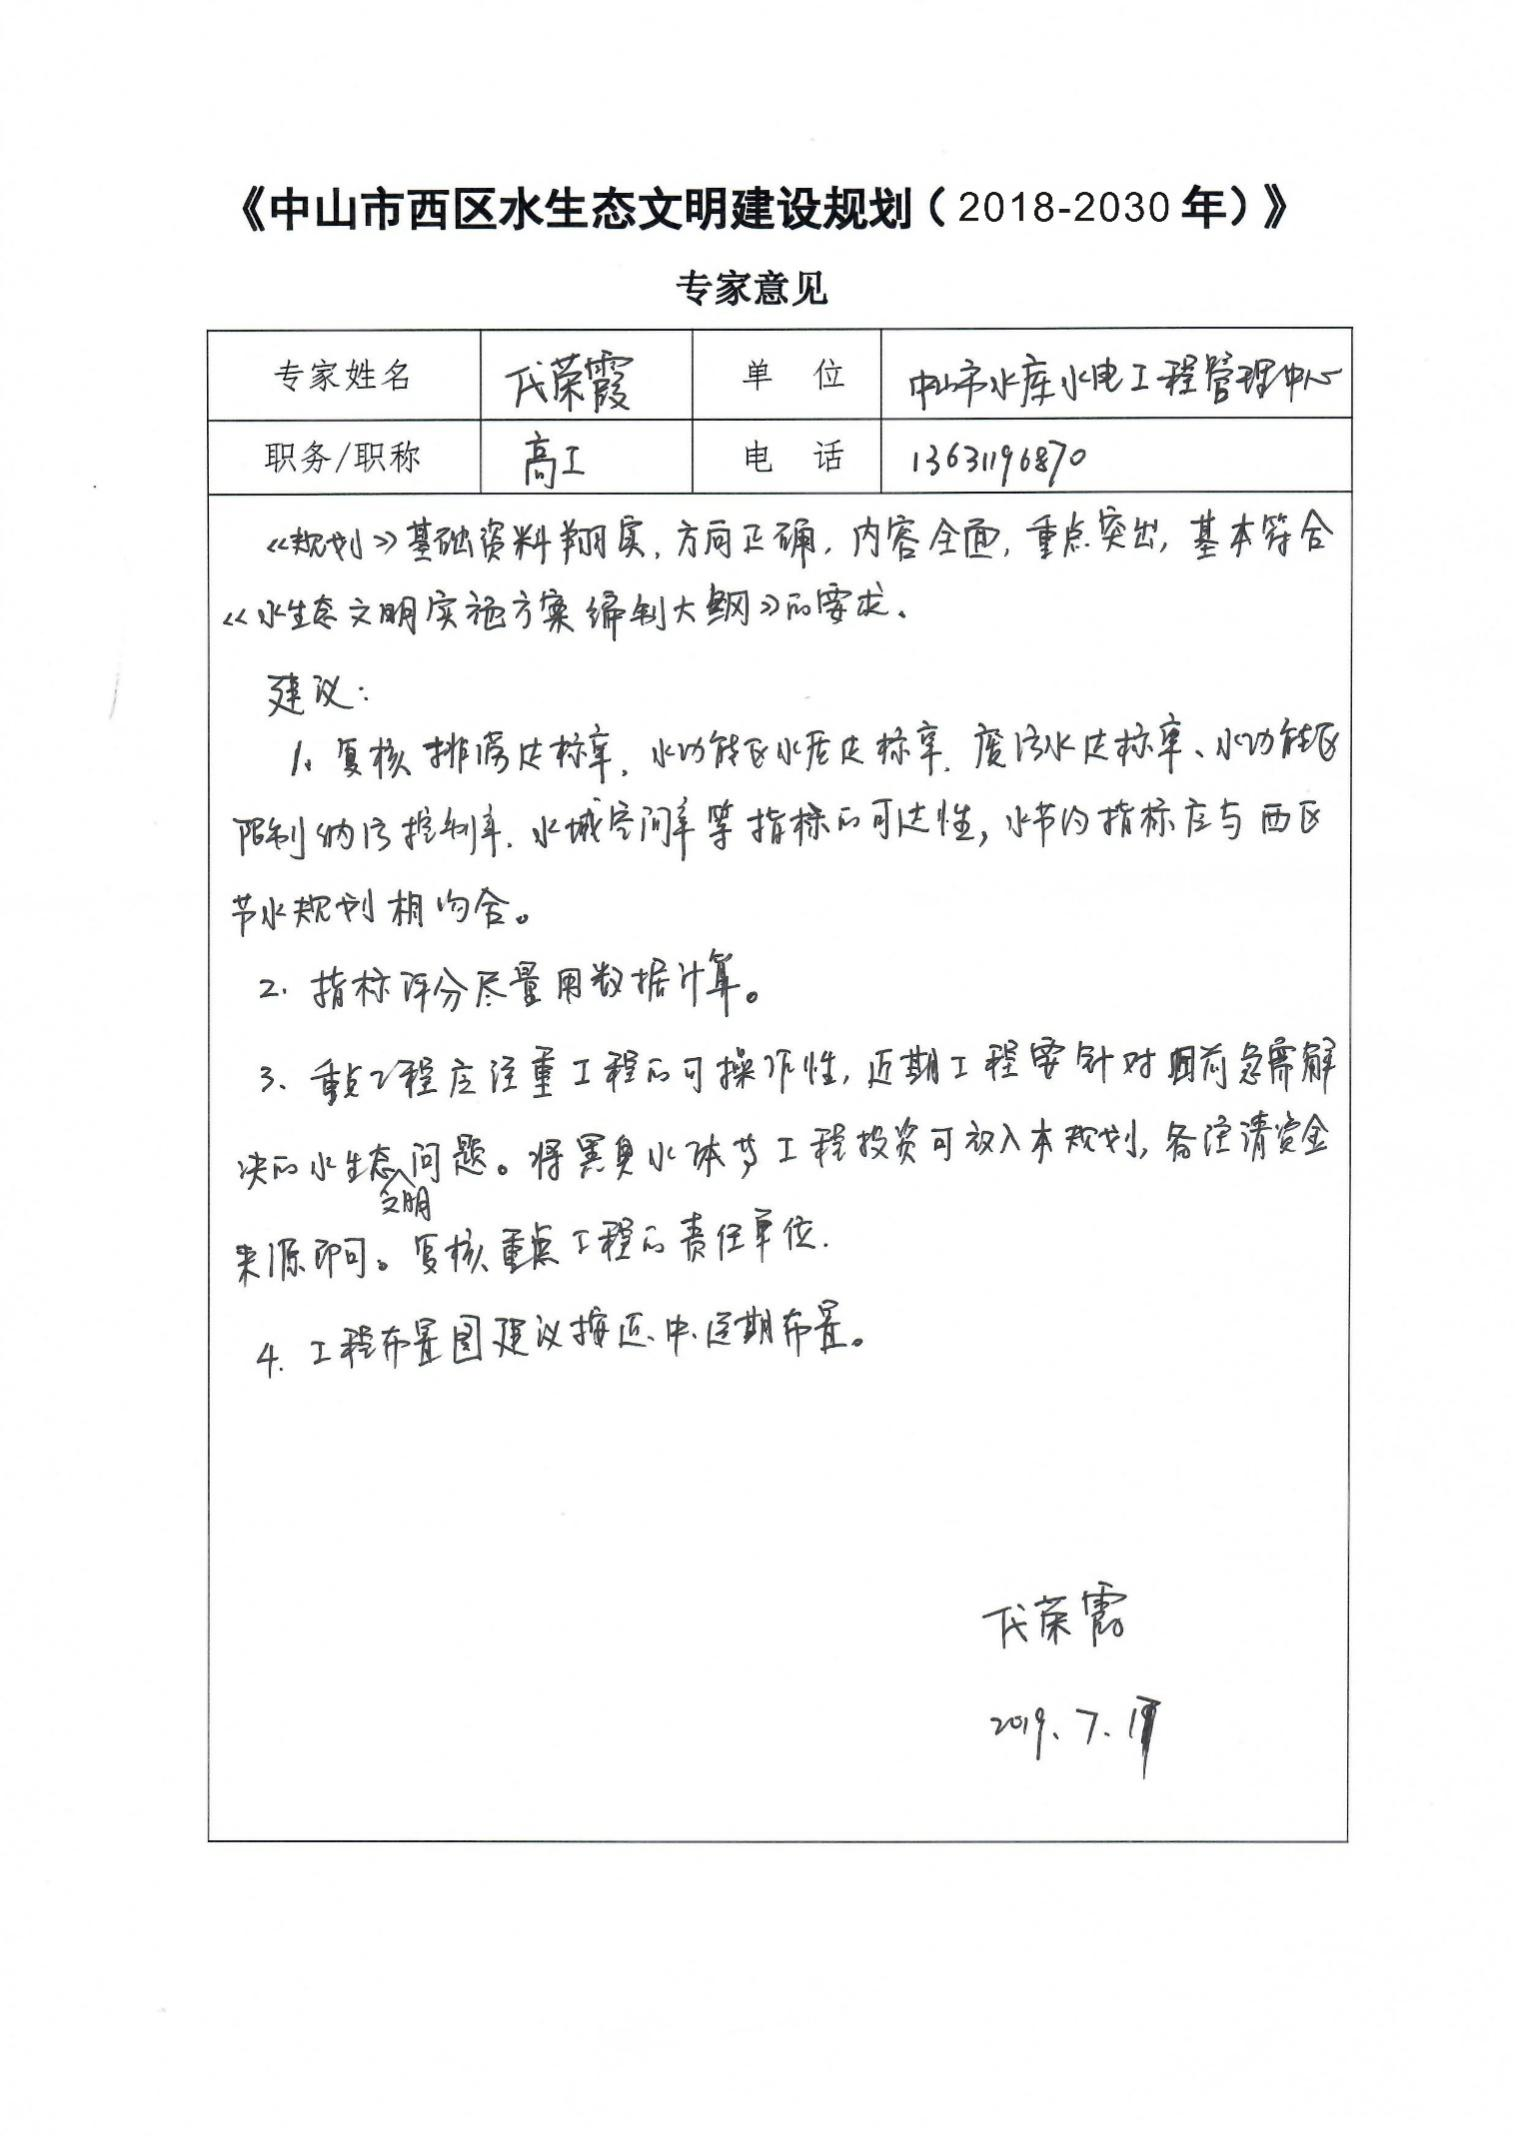 《中山市西区水生态文明建设规划（2018-2030年）》
专家意见
专家姓名 代荣霞 单 位 中山市水库水电工程管理中心
职务/职称 高工 电 话 13631196870
《规划》基础资料翔实，方向正确，内容全面，重点突出，基本符合
《水生态文明实施方案编制大纲》的要求、
建议：
1、复核排涝达标率、水功能区水质达标率、废污水达标率、水功能区
限制纳污控制率、水域空间率等指标的可达性，水节约指标应与西区
节水规划相吻合。
2. 指标评分尽量用数据计算。
3、重点工程应注重工程的可操作性，近期工程要针对目前急需解
决的水生态文明问题。将黑臭水体等工程投资可放入本规划，备注清资金
来源即可。复核重点工程的责任单位.
4. 工程布置图建议按近、中、远期布置。
代荣霞
2019.7.